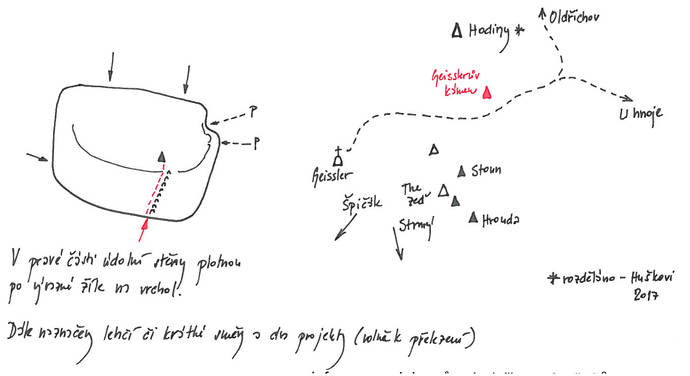 Oldřichov
Hodiny *
Geisslerův
kámen
P
P
U hnoje
Geissler
Stoun
Špičák
The
zeď
Hrouda
Strmý
V pravé části údolní stěny plotnou
po výrazné žíle na vrchol!
* rozděláno - Huškovi
2017
Dále naznačeny lehčí či krátké směry a dva projekty (volné k přelezení)